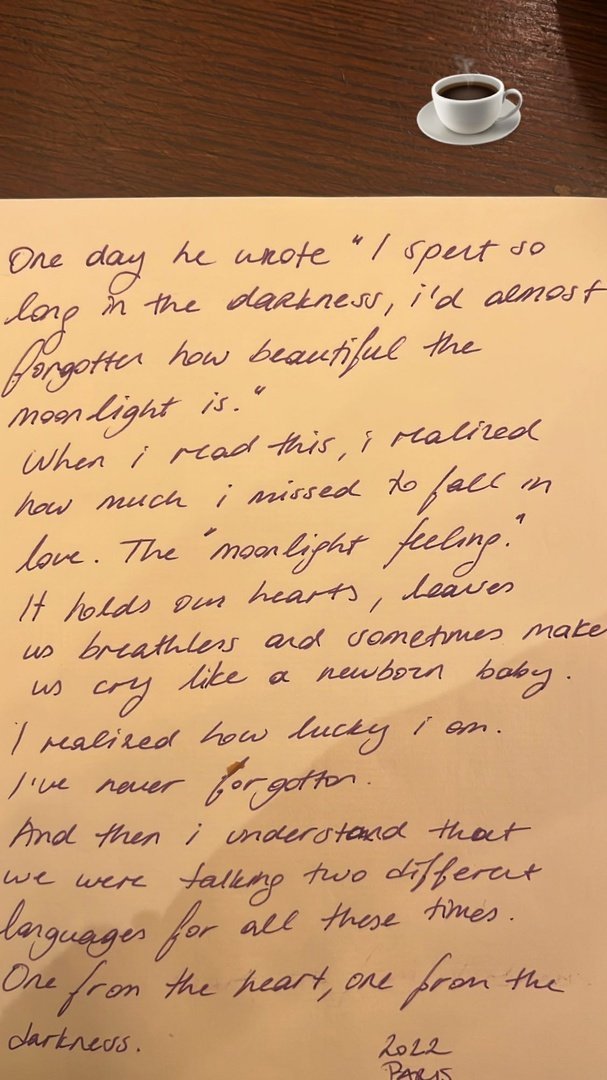 One day he wrote "I spent so
long in the darkness, i'd almost
forgotten how beautiful the
moonlight is."
When i read this, i realized
how much i missed to fall in
love. The "moonlight feeling."
It holds our hearts, leaves
us breathless and sometimes make
us cry like a newborn baby.
I realized how lucky i am.
I've never forgotton.
And then i understand that
we were talking two different
languages for all these times.
One from the heart, one from the
darkness.
2022
PARIS